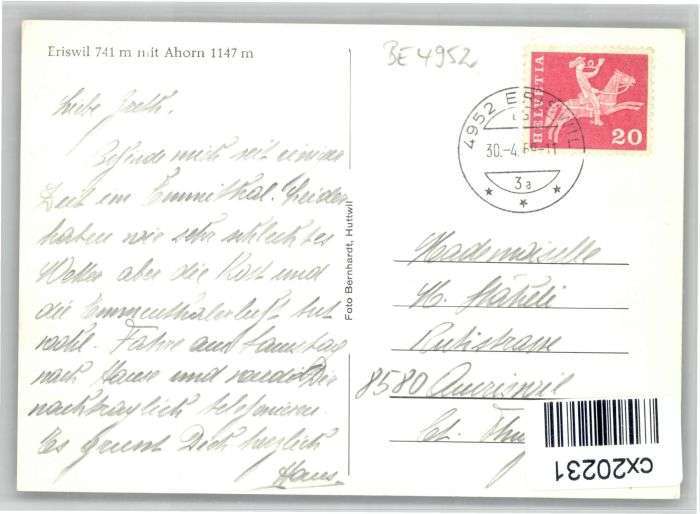 Eriswil 741 m mit Ahorn 1147 m
BE 4952
HELVETIA
20
4952 ERISWIL
30.-4.6 -11
3a
Liebe Greth.
Befinde mich seit einiger
Zeit im Emmithal. Leider
haben wir sehr schlechtes
Wetter aber die Kost und
die Emmenthalerluft tut
wohl. Fahre am Samstag
nach Hause und werde Dir
nachträglich telefonieren.
Es grüsst Dich herzlich
Hans.
Foto Bernhardt, Huttwil
Mademoiselle
M. Stäheli
Rütistrasse
8580 Amriswil
Ct. Thu
cx20231